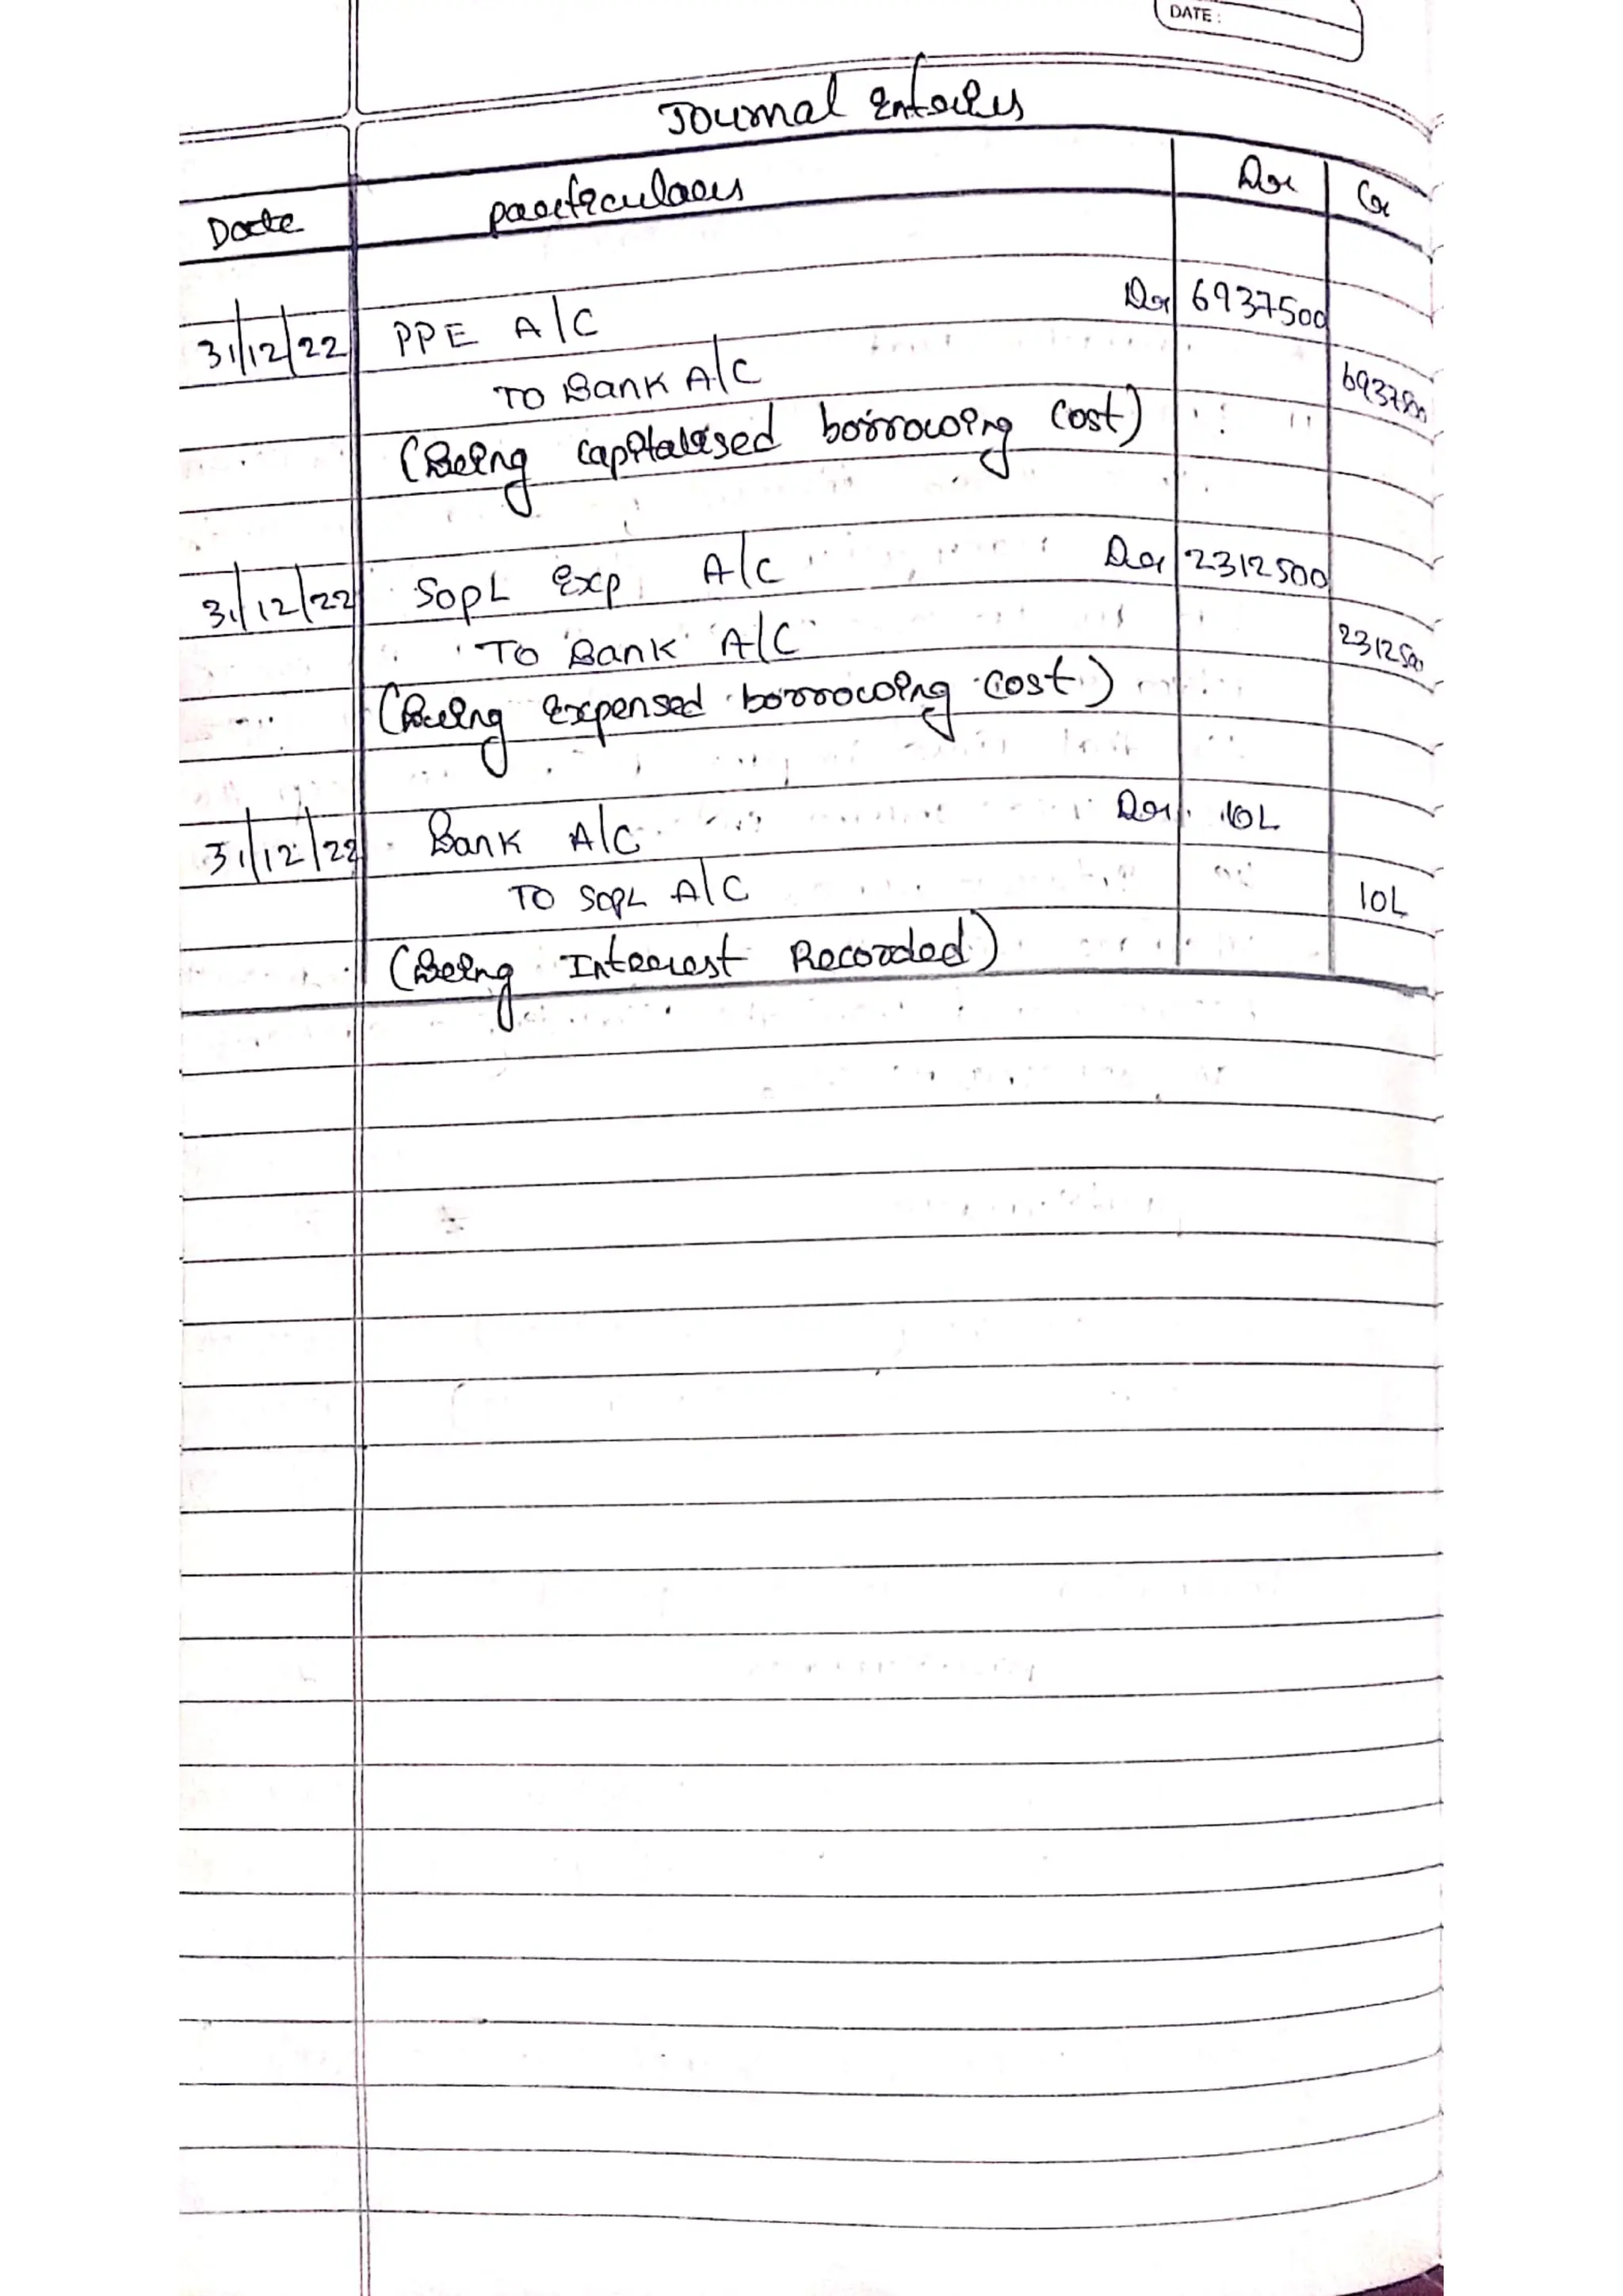 DATE :
Journal Entries
Date particulars Dr Cr
31/12/22 PPE A/C Dr 6937500
To Bank A/C 6937500
(Being capitalised borrowing cost)
31/12/22 SOPL Exp A/C Dr 2312500
To Bank A/C 2312500
(Being expensed borrowing cost)
31/12/22 Bank A/C Dr 10L
To SOPL A/C 10L
(Being Interest Recorded)